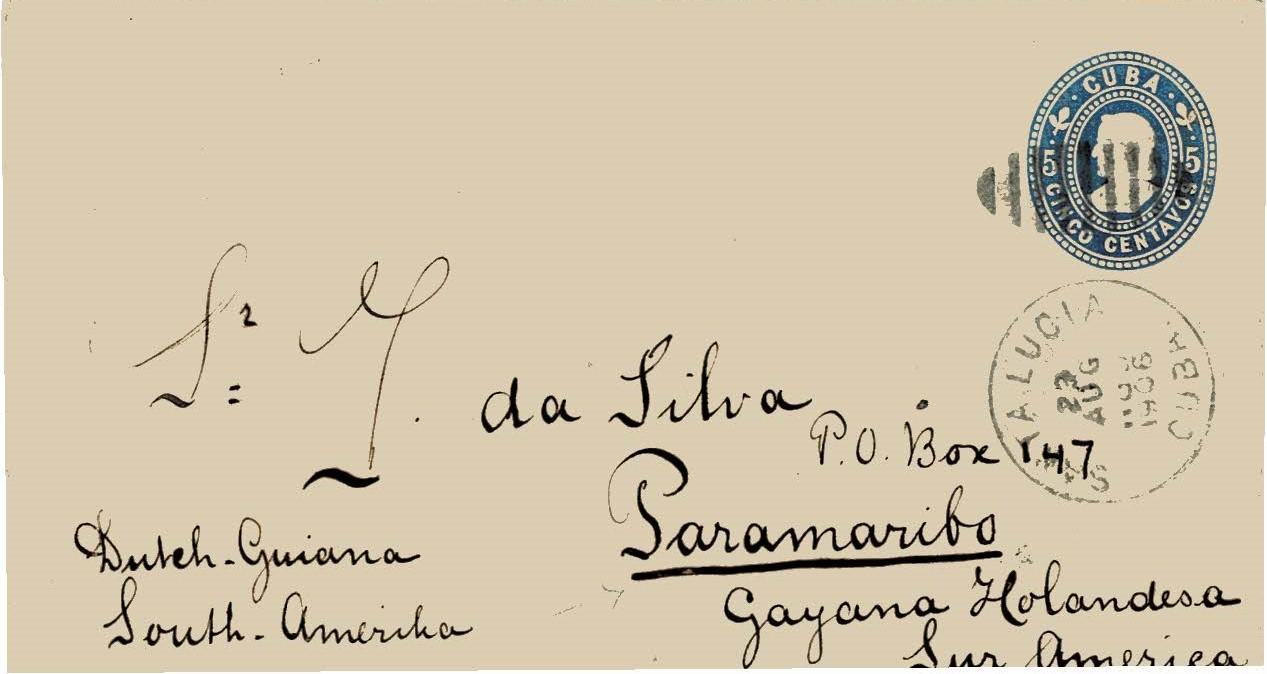 CUBA
5 5
CINCO CENTAVOS
SANTA LUCIA
CUBA
AUG
1906
Sr. Y. da Silva
P.O. Box 147
Paramaribo
Gayana Holandesa
Sur America
Dutch-Guiana
South-Amerika